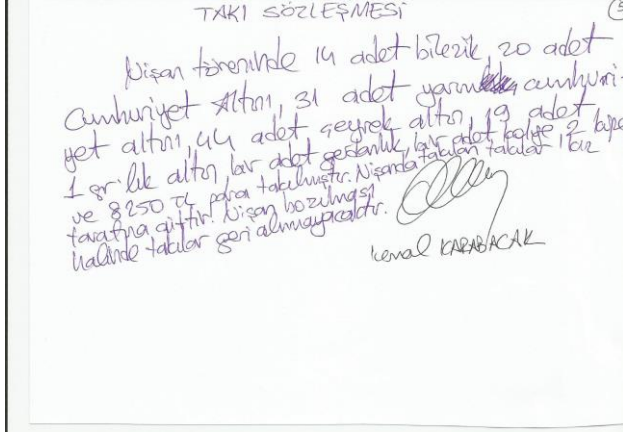 TAKI SÖZLEŞMESİ
Nişan töreninde 14 adet bilezik, 20 adet
Cumhuriyet Altını, 31 adet yarım cumhuri-
yet altını, 44 adet çeyrek altın, 19 adet
1 gr'lık altın, bir adet gerdanlık, bir adet kolye, 2 küpe
ve 8250 TL para takılmıştır. Nişanda takılan takılar kız
tarafına aittir. Nişan bozulması
halinde takılar geri alınmayacaktır.
Kemal KARABACAK